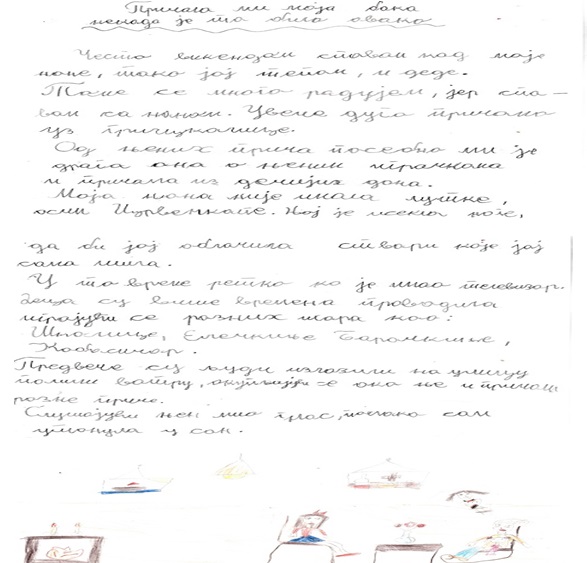 Причала ми моја бака
некада је то било овако
Често викендом спавам код моје
нане, тако јој тепам, и деде.
Томе се много радујем, јер спа-
вам са наном. Увече дуго причамо
уз
Од њених прича посебно ми је
драга она о њеним играчкама
и причама из дечијих дана.
Моја нана није имала лутке,
осим Црвенкапе. Њој је секла косе,
да би јој облачила ствари које јој
сама шила.
У то време ретко ко је имао телевизор.
Деца су више времена проводила
играјући се разних игара као:
Школице, Јелечкиње Барјачкиње,
Предвече су људи излазили на улицу
палили ватру, окупљајући се око ње и причали
разне приче.
Слушајући њен мио глас, полако сам
утонула у сан.